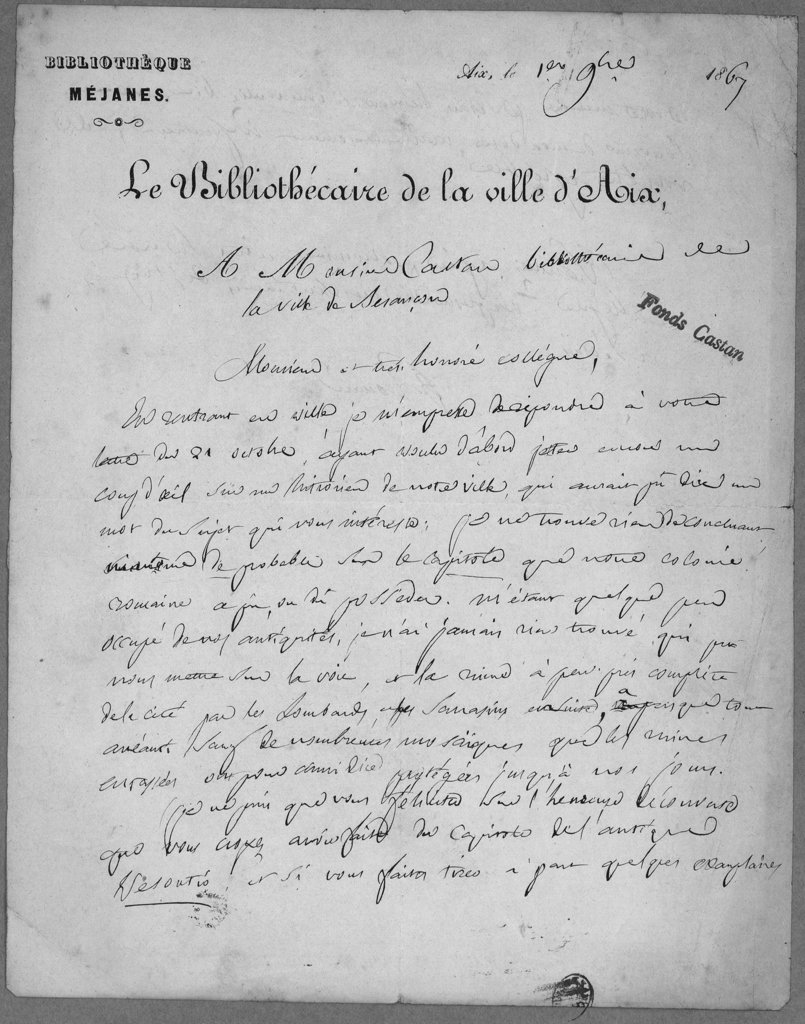 BIBLIOTHÈQUE
MÉJANES.
Aix, le 1er 9bre 1867
Le Bibliothécaire de la ville d'Aix,
A Monsieur Castan bibliothécaire de
la ville de Besançon
Fonds Castan
Monsieur et très honoré collègue,
En rentrant en ville je m'empresse de répondre à votre
lettre du 21 octobre, ayant voulu d'abord jetter encore un
coup d'œil sur un historien de notre ville, qui aurait pû dire un
mot du sujet qui vous intéresse; je ne trouve rien de concluant
ni même de probable sur le capitole que notre colonie
romaine a pu, ou dû posseder. m'étant quelque peu
occupé de nos antiquités, je n'ai jamais rien trouvé qui pût
nous mettre sur la voie, et la ruine à peu près complète
de la cité par les Lombards, et les Sarrasins ensuite, a presque tout
anéanti, sauf de nombreuses mosaïques que les ruines
entassées ont pour ainsi dire protégées jusqu'à nos jours.
je ne puis que vous féliciter sur l'heureuse découverte
que vous croyez avoir faite du capitole de l'antique
Vesontio, et si vous faites tirer à part quelques exemplaires